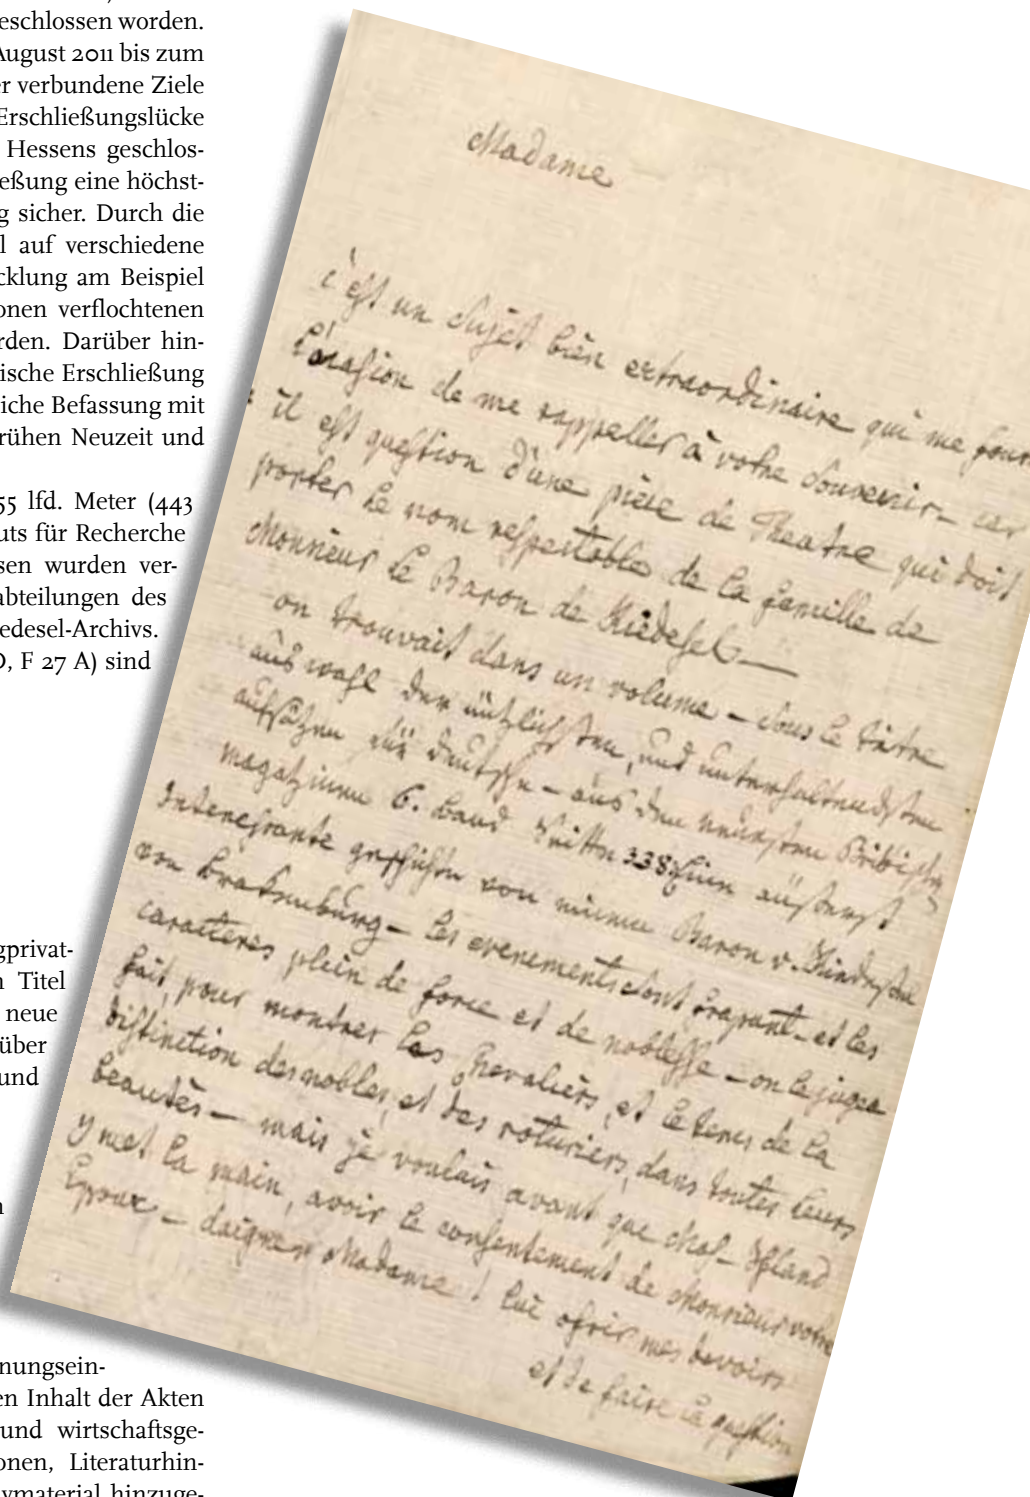 eschlossen worden.
August 2011 bis zum
er verbundene Ziele
Erschließungslücke
Hessens geschlos-
eßung eine höchst-
g sicher. Durch die
l auf verschiedene
cklung am Beispiel
onen verflochtenen
rden. Darüber hin-
ische Erschließung
iche Befassung mit
rühen Neuzeit und
55 lfd. Meter (443
uts für Recherche
sen wurden ver-
abteilungen des
edesel-Archivs.
O, F 27 A) sind
gprivat-
n Titel
neue
über
und
n
nungsein-
en Inhalt der Akten
und wirtschaftsge-
onen, Literaturhin-
ymaterial hinzuge-
Madame
c'est un sujet bien extraordinaire qui me four
l'ocasion de me rappeller à votre souvenir – car
il est question d'une pièce de Theatre qui doit
porter le nom respectable de la famille de
Monsieur le Baron de Riedesel –
on trouvait dans un volume – sous le titre
auswahl der nützlichsten, und unterhaltendsten
aufsätzen für deutsche – aus den neuesten Britischen
magazinen 6. band Seitte 338 Eine äußerst
Interessante geschichte von einem Baron v.
von – les evenements sont frapant – et les
caracteres plein de force et de noblesse – on le jugea
fait, pour montrer les Chevaliers, et le tems de la
distinction des nobles, et des roturiers, dans toutes leurs
beautés – mais je voulais avant que Iffland
y met la main, avoir le consentement de Monsieur votre
Epoux – daignes Madame ! lui ofrir mes devoirs
et de faire la question